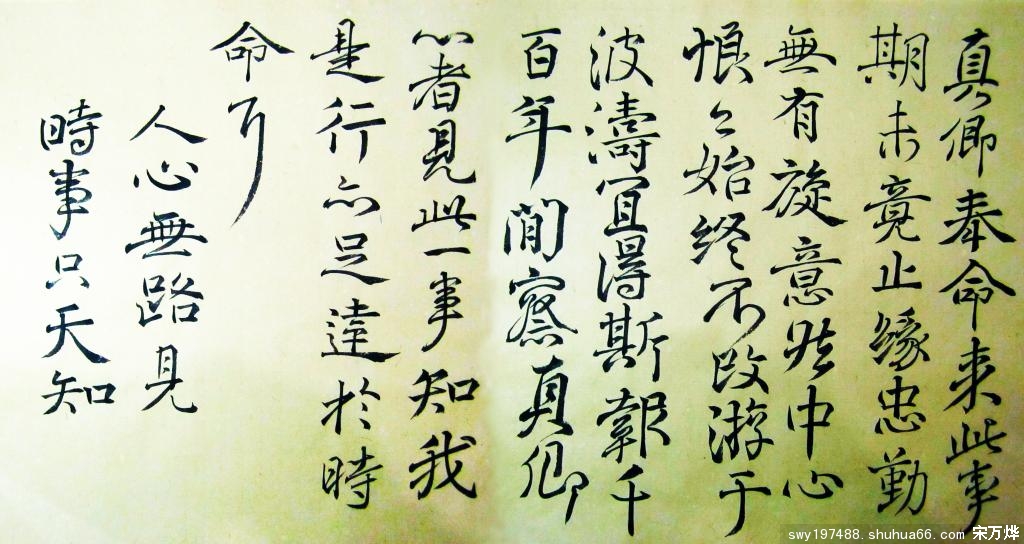 真卿奉命来此事
期未竟止緣忠勤
無有旋意然中心
恨〻始終不改游于
波濤宜得斯報千
百年間察真卿
心者見此一事知我
是行亦足達於時
命耳
人心無路見
時事只天知
swy197488.shuhua66.com 宋万烨